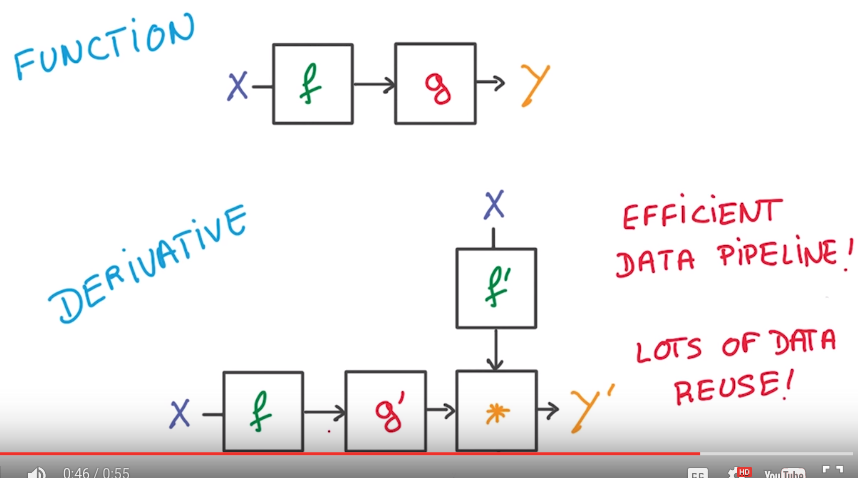 FUNCTION
X f g Y
DERIVATIVE
X
f'
EFFICIENT
DATA PIPELINE!
LOTS OF DATA
REUSE!
X f g' * Y'
0:46 / 0:55
HD
YouTube